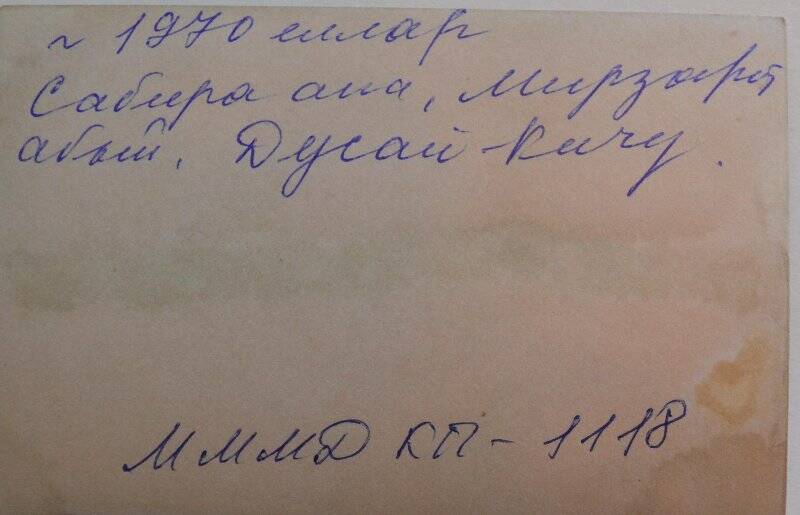 ~ 1970 еллар
Сабира апа, Мирзариф
абый, Дусай-Кичу.
МММД КП-1118